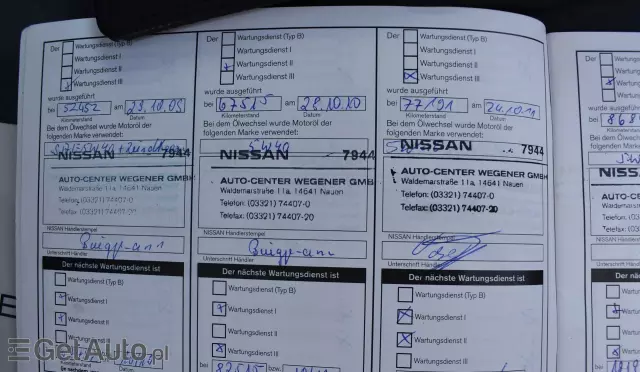 Der
Wartungsdienst (Typ B)
Wartungsdienst I
Wartungsdienst II
Wartungsdienst III
wurde ausgeführt
bei 52452 am 23.10.09
Kilometerstand Datum
Bei dem Ölwechsel wurde Motoröl der
folgenden Marke verwendet:
NISSAN 7944
AUTO-CENTER WEGENER GMBH
Waldemarstraße 11a, 14641 Nauen
Telefon: (03321) 74407-0
Telefax: (03321) 74407-20
NISSAN Händlerstempel
Unterschrift Händler
Der nächste Wartungsdienst ist
Wartungsdienst (Typ B)
Wartungsdienst I
Wartungsdienst II
Wartungsdienst III
Der
Wartungsdienst (Typ B)
Wartungsdienst I
Wartungsdienst II
Wartungsdienst III
wurde ausgeführt
bei 67515 am 28.10.10
Kilometerstand Datum
Bei dem Ölwechsel wurde Motoröl der
folgenden Marke verwendet:
5W40
NISSAN 7944
AUTO-CENTER WEGENER GMBH
Waldemarstraße 11a, 14641 Nauen
Telefon: (03321) 74407-0
Telefax: (03321) 74407-20
NISSAN Händlerstempel
Unterschrift Händler
Der nächste Wartungsdienst ist
Wartungsdienst (Typ B)
Wartungsdienst I
Wartungsdienst II
Wartungsdienst III
bei 82515 bzw.
Der
Wartungsdienst (Typ B)
Wartungsdienst I
Wartungsdienst II
Wartungsdienst III
wurde ausgeführt
bei 77191 am 24.10.11
Kilometerstand Datum
Bei dem Ölwechsel wurde Motoröl der
folgenden Marke verwendet:
NISSAN 7944
AUTO-CENTER WEGENER GMBH
Waldemarstraße 11a, 14641 Nauen
Telefon: (03321) 74407-0
Telefax: (03321) 74407-20
NISSAN Händlerstempel
Unterschrift Händler
Der nächste Wartungsdienst ist
Wartungsdienst (Typ B)
Wartungsdienst I
Wartungsdienst II
Wartungsdienst III
Der
wurde ausgeführt
bei
Bei dem Ölwechsel
folgenden Marke
NISSAN
AUTO-C
Waldemar
Telefon:
Telefax:
NISSAN Händlerstempel
Unterschrift Händler
Der nächs
GetAuto.pl